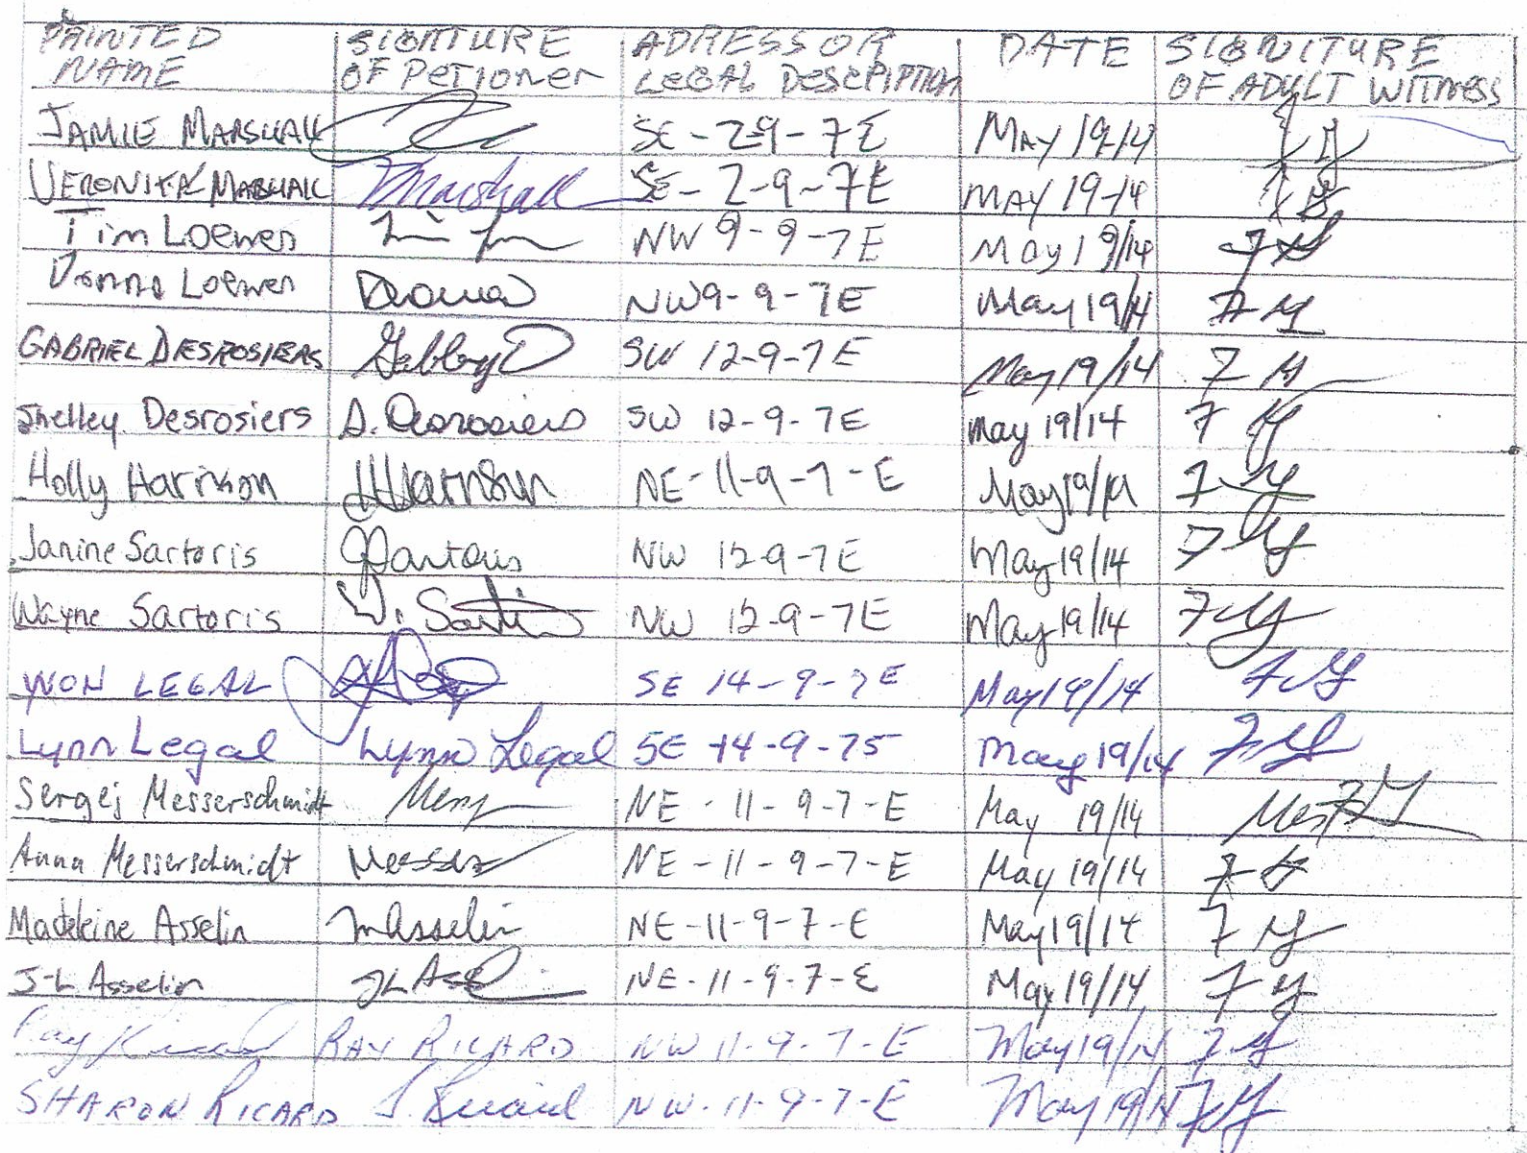 PRINTED NAME SIGNTURE OF PETIONER ADRESS OR LEGAL DESCRIPTION DATE SIGNITURE OF ADULT WITNESS
JAMIE MARSHALL SE-29-7E MAY 19/14
VERONIKA MARSHALL Marshall SE-2-9-7E MAY 19-14
Tim Loewen NW 9-9-7E May 19/14
Donna Loewen Donna NW9-9-7E May 19/14
GABRIEL DESROSIERS Gabby D SW 12-9-7E May 19/14
Shelley Desrosiers S. Desrosiers SW 12-9-7E May 19/14
Holly Harrison HHarrison NE-11-9-7-E May 19/14
Janine Sartoris JSartoris NW 12-9-7E May 19/14
Wayne Sartoris W. NW 12-9-7E May 19/14
YVON LEGAL SE 14-9-7E May 19/14
Lynn Legal Lynn Legal SE 14-9-75 May 19/14
Sergej Messerschmidt NE-11-9-7-E May 19/14
Anna Messerschmidt NE-11-9-7-E May 19/14
Madeleine Asselin MAsselin NE-11-9-7-E May 19/14
J-L Asselin JLAsse NE-11-9-7-E May 19/14
Ray Ricard RAY RICARD NW 11-9-7-E May 19/14
SHARON RICARD S. Ricard NW-11-9-7-E May 19/14